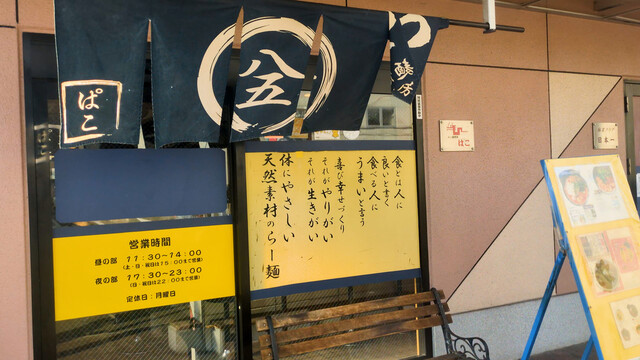 ぱこ
八五
営業時間
昼の部 11:30~14:00
(土・日・祝日は15:00まで営業)
夜の部 17:30~23:00
(日・祝日は22:00まで営業)
定休日:月曜日
食とは人に
良いと書く
食べる人に
うまいと言う
喜び幸せづくり
それがやりがい
それが生きがい
体にやさしい
天然素材のらー麺
ぱこ
日本一